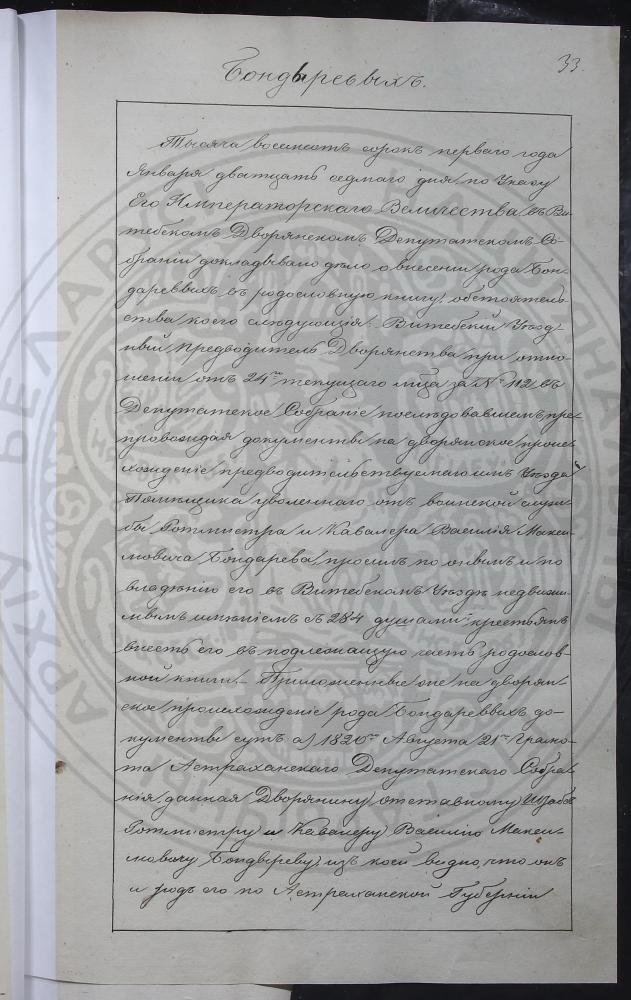 33.
Бондыревыхъ.
Тысяча восемсотъ сорокъ перваго года
Января двадцать седмаго дня, по Указу
Его Императорскаго Величества, въ Ви-
тебскомъ Дворянскомъ Депутатскомъ Со-
браніи докладывано дѣло о внесеніи рода Бон-
даревыхъ въ родословную книгу, обстоятель-
ства коего слѣдующія: Витебскій Уѣзд-
ный Предводитель Дворянства при отно-
шеніи отъ 24го текущаго м̃ца за № 112, въ
Депутатское Собраніе послѣдовавшемъ, пре-
провождая документы на дворянское проис-
хожденіе предводительствуемаго имъ Уѣзда
Помѣщика уволеннаго отъ воинской служ-
бы Ротмистра и Кавалера Василія Макси-
мовича Бондарева, просилъ по онымъ и по
владѣнію его въ Витебскомъ Уѣздѣ недвижи-
мымъ имѣніемъ съ 284 душами крестьянъ
внесть его въ подлежащую часть родослов-
ной книги. Приложенные же на дворян-
ское происхожденіе рода Бондаревыхъ до-
кументы суть а) 1826го Августа 21го Грамо-
та Астраханскаго Депутатскаго Собра-
нія данная Дворянину, отставному Штабсъ
Ротмистру и Кавалеру Василію Макси-
мовичу Бондыреву, изъ коей видно, что онъ
и родъ его по Астраханской Губерніи
АРХІЎ БЕЛАРУСІ